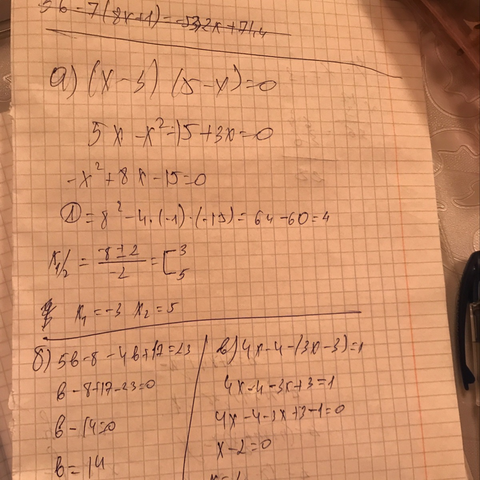 а) (x-3) (5-x)=0
5x-x²-15+3x=0
-x²+8x-15=0
D=8²-4·(-1)·(-15)=64-60=4
x₁/₂ = -8±2/-2 = [3 5
x₁=-3 x₂=5
б) 5b-8-4b+17=23
b-8+17-23=0
b-14=0
b=14
в) 4x-4-(3x-3)=1
4x-4-3x+3=1
4x-4-3x+3-1=0
x-2=0